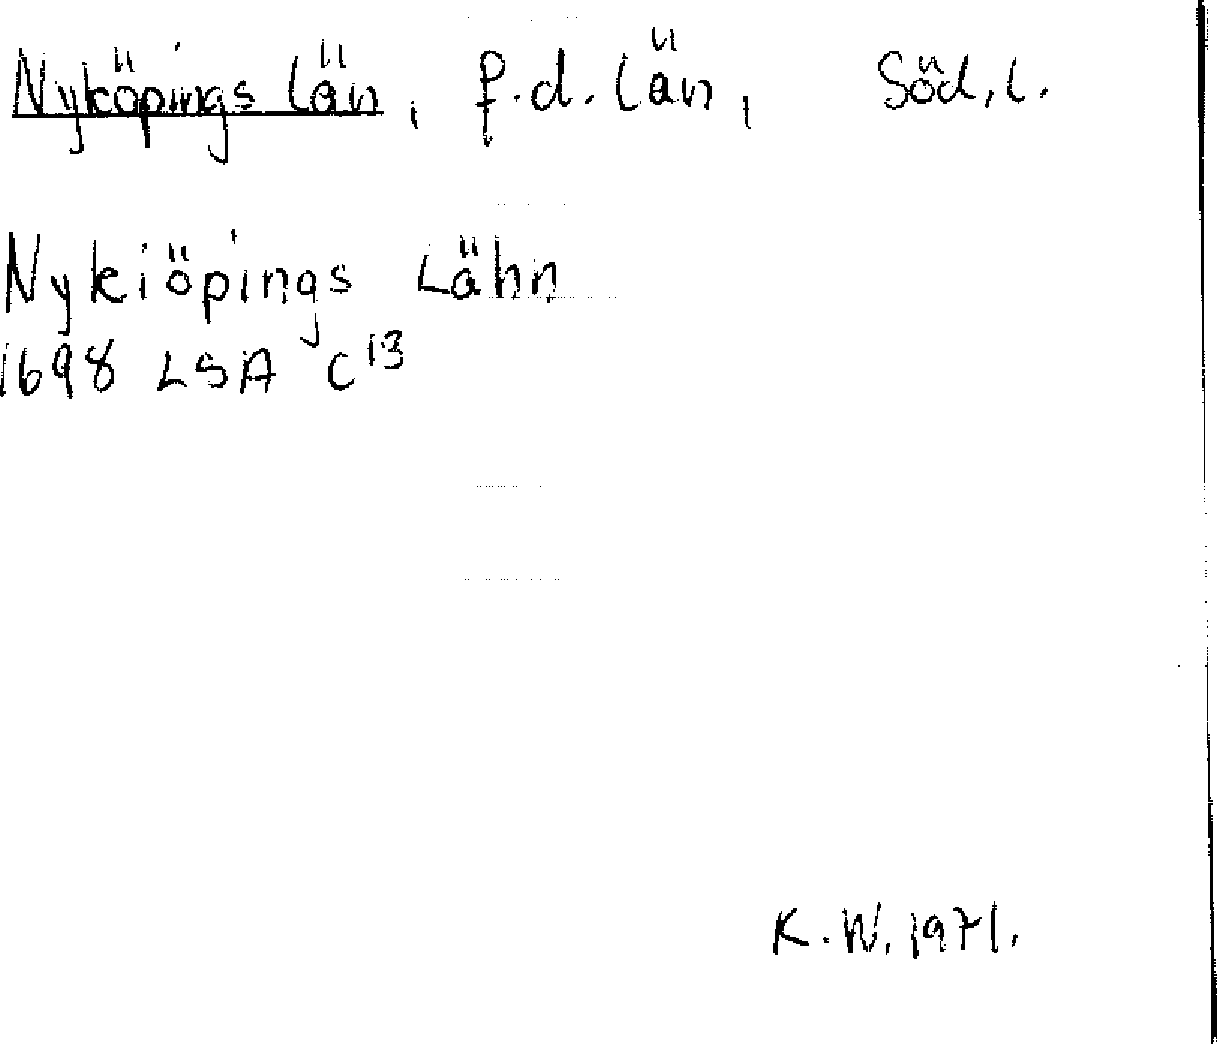 Nyköpings län, f.d. län, Söd. l.
Nykiöpings Lähn
1698 LSA C13
K.W. 1971.